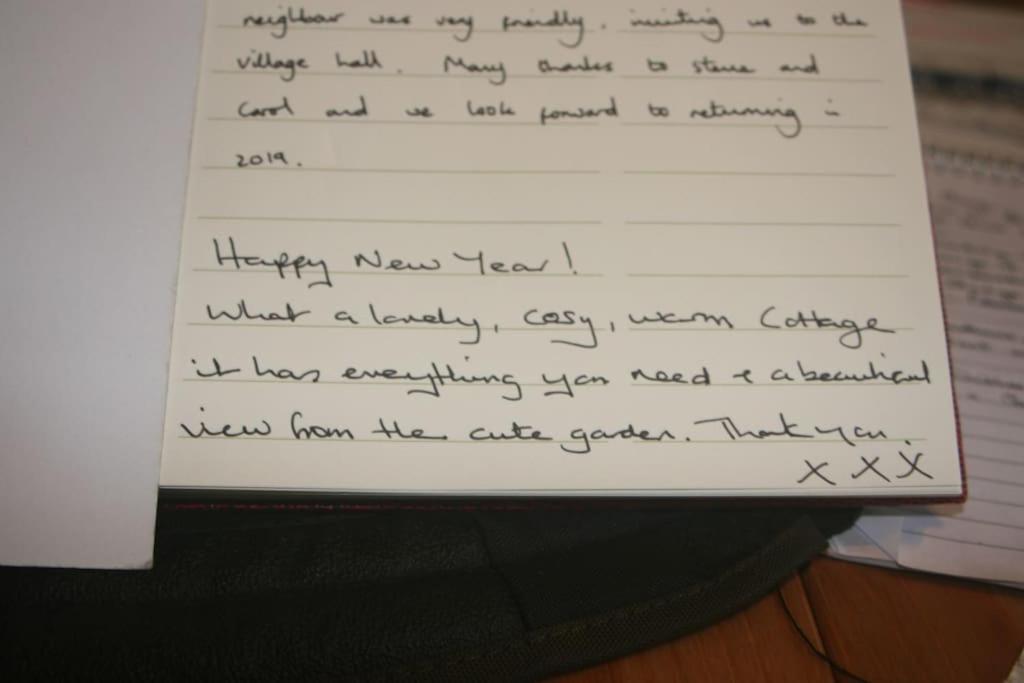 neighbour was very friendly, inviting us to the
village hall. Many thanks to Steve and
Carol and we look forward to returning in
2019.
Happy New Year!
What a lovely, cosy, warm Cottage
it has everything you need & a beautiful
view from the cute garden. Thank you.
x x x